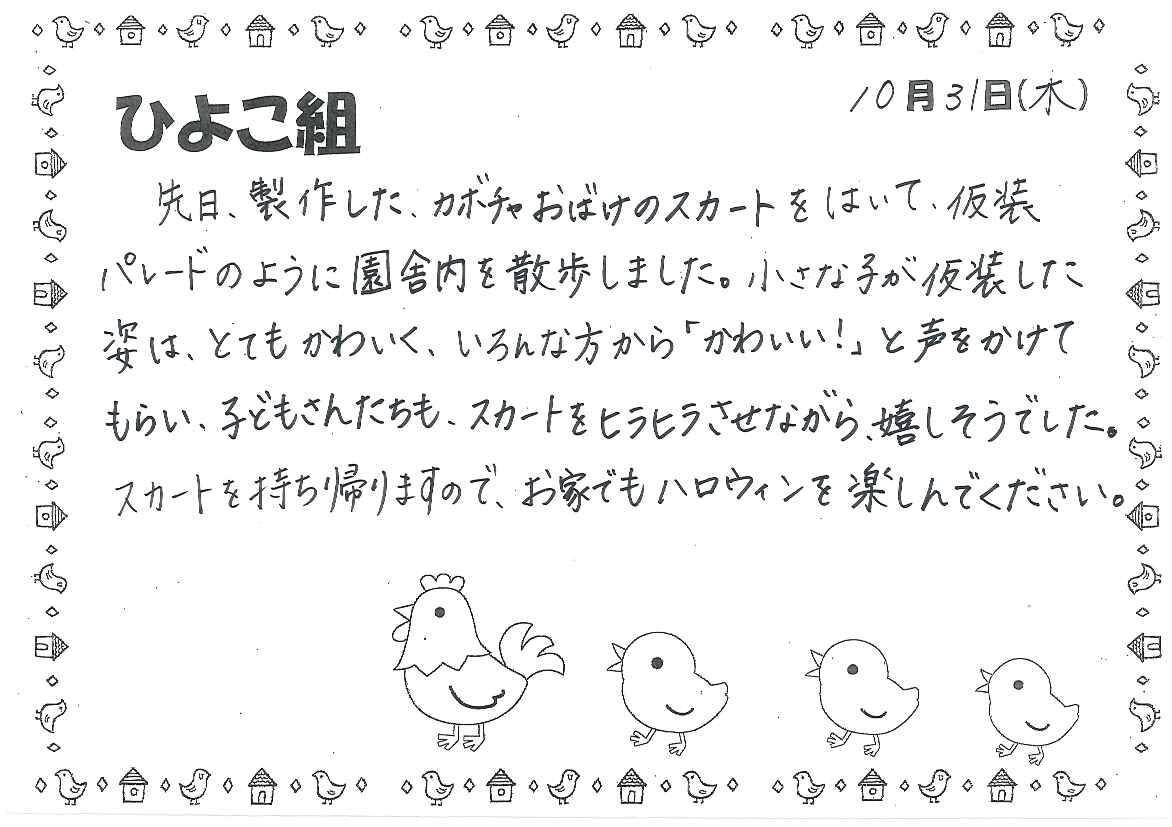 ひよこ組
10月31日(木)
先日、製作した、カボチャおばけのスカートをはいて、仮装
パレードのように園舎内を散歩しました。小さな子が仮装した
姿は、とてもかわいく、いろんな方から「かわいい!」と声をかけて
もらい、子どもさんたちも、スカートをヒラヒラさせながら、嬉しそうでした。
スカートを持ち帰りますので、お家でもハロウィンを楽しんでください。